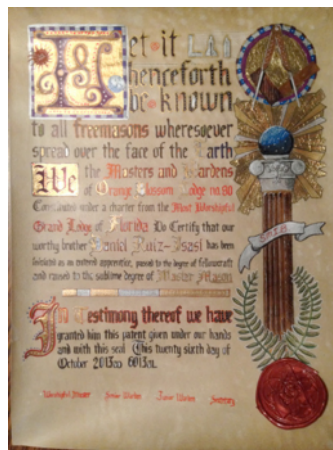 Let it LAI
henceforth
be known
to all freemasons wheresoever
spread over the face of the Earth
We the Masters and Wardens
of Orange Blossom Lodge no.80
Constituted under a charter from the Most Worshipful
Grand Lodge of Florida Do Certify that Our
worthy brother Daniel Ruiz-Isasi has been
initiated as an entered apprentice, passed to the degree of fellowcraft
and raised to the sublime degree of Master Mason
In Testimony thereof we have
granted him this patent given under our hands
and with this seal This twenty sixth day of
October 2013 6013
Worshipful Master Senior Warden Junior Warden Secretary